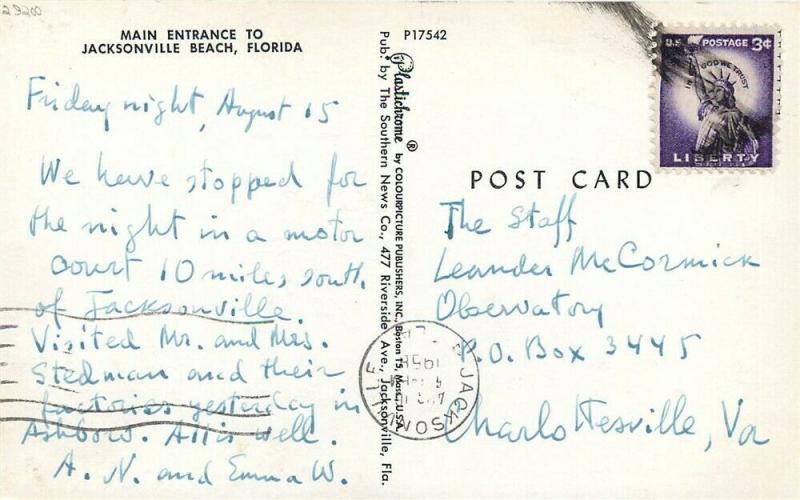 29200
MAIN ENTRANCE TO
JACKSONVILLE BEACH, FLORIDA
Friday night, August 15
We have stopped for
the night in a motor
court 10 miles south
of Jacksonville.
Visited Mr. and Mrs.
Stedman and their
factories yesterday in
Ashboro. All is well.
A. N. and Emma W.
P17542
Plastichrome ® by COLOURPICTURE PUBLISHERS, INC., Boston 15, Mass., U.S.A.
Pub. by The Southern News Co., 477 Riverside Ave., Jacksonville, Fla.
U.S. POSTAGE 3¢
IN GOD WE TRUST
LIBERTY
POST CARD
The Staff
Leander McCormick
Observatory
P.O. Box 3445
Charlottesville, Va
JACKSONVILLE
1958